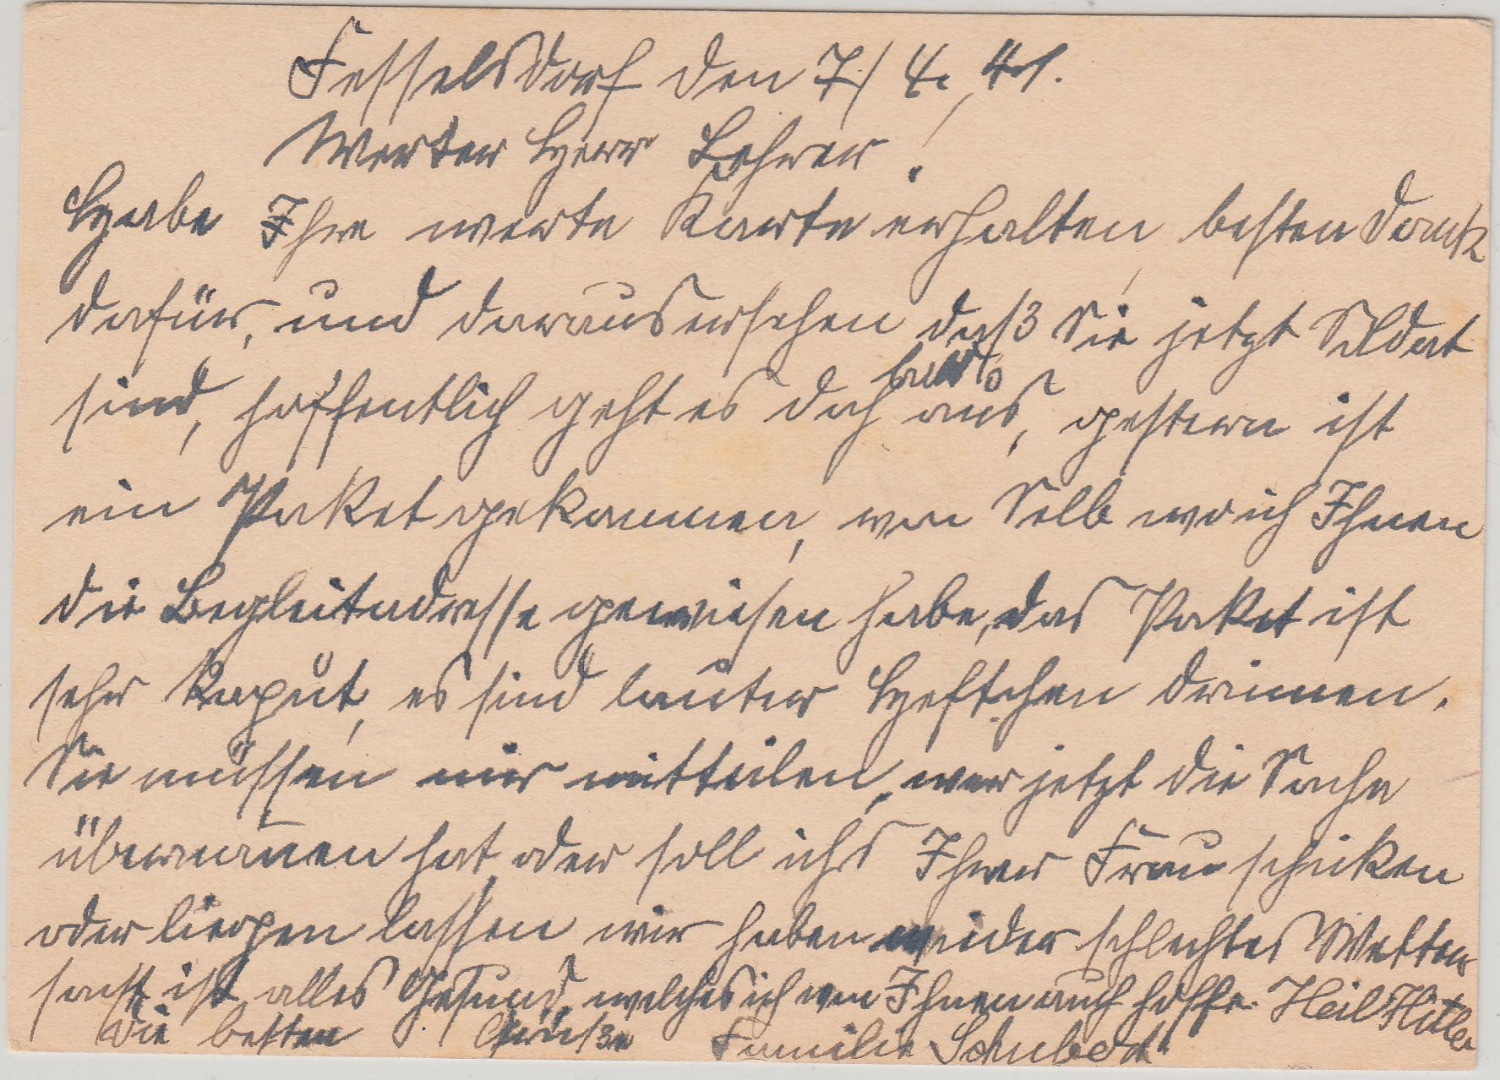 Fesselsdorf den 7./4. 41.
Werter Herr Lehrer!
Habe Ihre werte Karte erhalten, besten Dank
dafür, und daraus ersehen daß Sie jetzt Soldat
sind, hoffentlich geht es doch bald aus, gestern ist
ein Paket gekommen, von Selb wo ich Ihnen
die Begleitadresse gewiesen habe, das Paket ist
sehr kaput, es sind lauter Heftchen drinnen.
Sie müssen mir mitteilen, wer jetzt die Sache
übernommen hat, oder soll ichs Ihrer Frau schicken
oder liegen lassen wir haben wieder schlechtes Wetter
sonst ist alles Gesund, welches ich von Ihnen auch hoffe. Heil Hitler
Die besten Grüße Familie Schubert